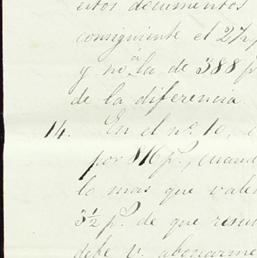 estos documentos
consiguiente el 27½
y no á la de 388 p
de la diferencia.
14. En el nº 10,
por 816 p., cuand
lo mas que valen
3½ p. de que resu
debe v. abonarme